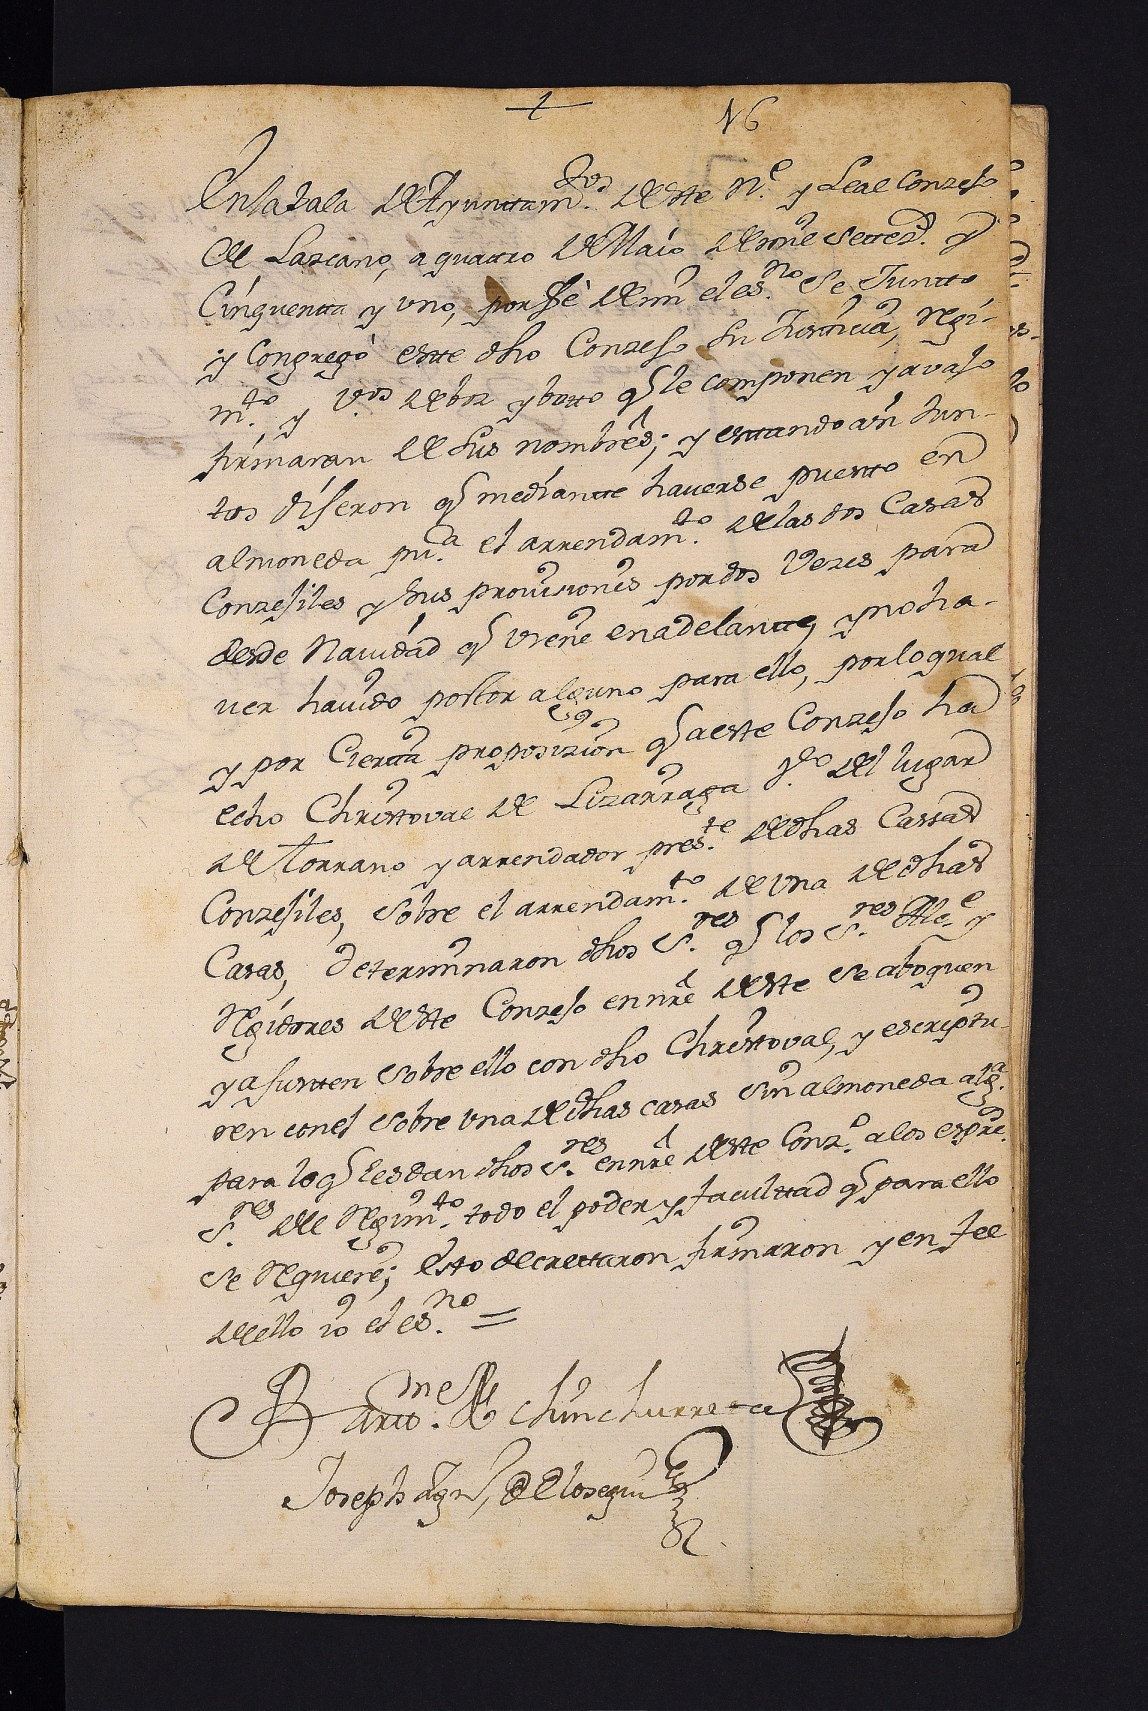 + 16
En la Sala de Ayuntam.tos de este N.e y Leal Conzejo
de Lazcano, a quattro de Maio de mil settez.s y
Cinquenta y uno, por fè de mi el es.no Se Juntto
y Congregò este dho Conzejo su Justticia, Regi-
m.to y v.os de boz y botto q le componen y avajo
firmaran de sus nombres; y esttando asi Jun-
tos dijeron q mediantte haverse puestto en
almoneda pu.ca el arrendam.to de las dos Casas
Conzejiles y sus provisiones por dos Vezes para
desde Navidad q viene en adelantte, y no ha-
ver havido posttor alguno para ello, por lo qual
y por Cierta proposizion q a este Conzejo ha
echo Christtoval de Lizarraga v.o del lugar
de Torrano y arrendador pres.te de dhas Cassas
Conzejiles, sobre el arrendam.to de una de dhas
Casas, determinaron dhos S.res q los S.res Alc.e y
Regidores de este Conzejo en nre de este se aboquen
y ajustten sobre ello con dho Christtoval, y escriptu-
ren con el sobre una de dhas casas sin almoneda alg.a
para lo q les dan dhos S.res en nre de este Conz.o a los espre.
S.res del Regim.to todo el poder y facultad q para ello
se Requiere; Esto decrettaron firmaron y en fee
de ello io el es.no =
Barto.me de Chinchurreta
Joseph Ign.